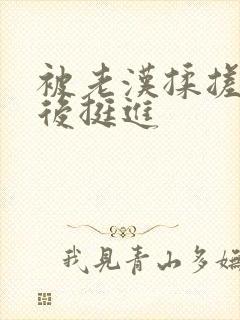 被老漢揉搓
後挺進
我見青山多嫵